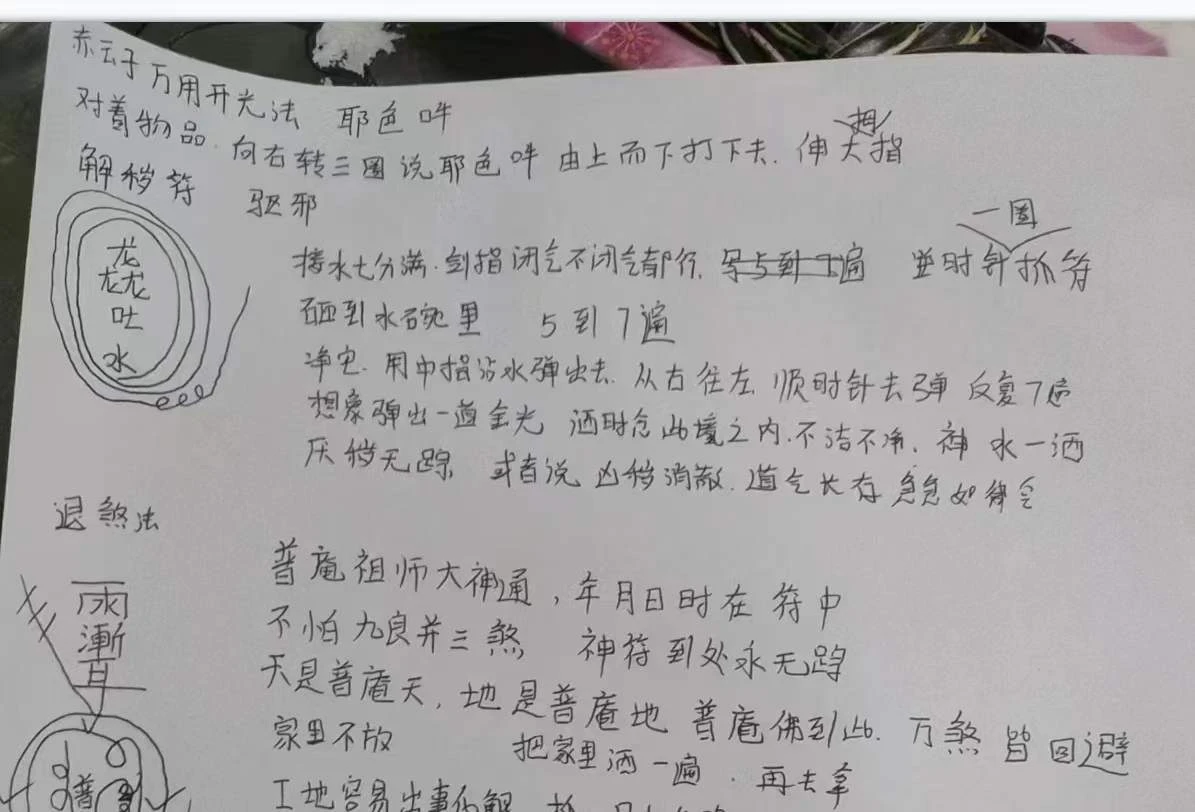 赤云子万用开光法 耶色吽
对着物品 向右转三圈说耶色吽 由上而下打下去. 伸大拇指
解秽符 驱邪
龙
龙龙
吐
水
一圈
接水七分满. 剑指闭气不闭气都行. 写5到7遍 逆时针抓符
砸到水碗里 5到7遍
净宅. 用中指沾水弹出去. 从右往左 顺时针去弹 反复7遍
想象弹出一道金光 洒时念此境之内. 不洁不净. 神水一洒
厌秽无踪 或者说 凶秽消散. 道气长存 急急如律令
退煞法
雨
渐
耳
普庵祖师大神通，年月日时在符中
不怕九良并三煞 神符到处永无踪
天是普庵天，地是普庵地 普庵佛到此. 万煞皆回避
家里不放 把家里洒一遍. 再去拿
普
工地容易出事